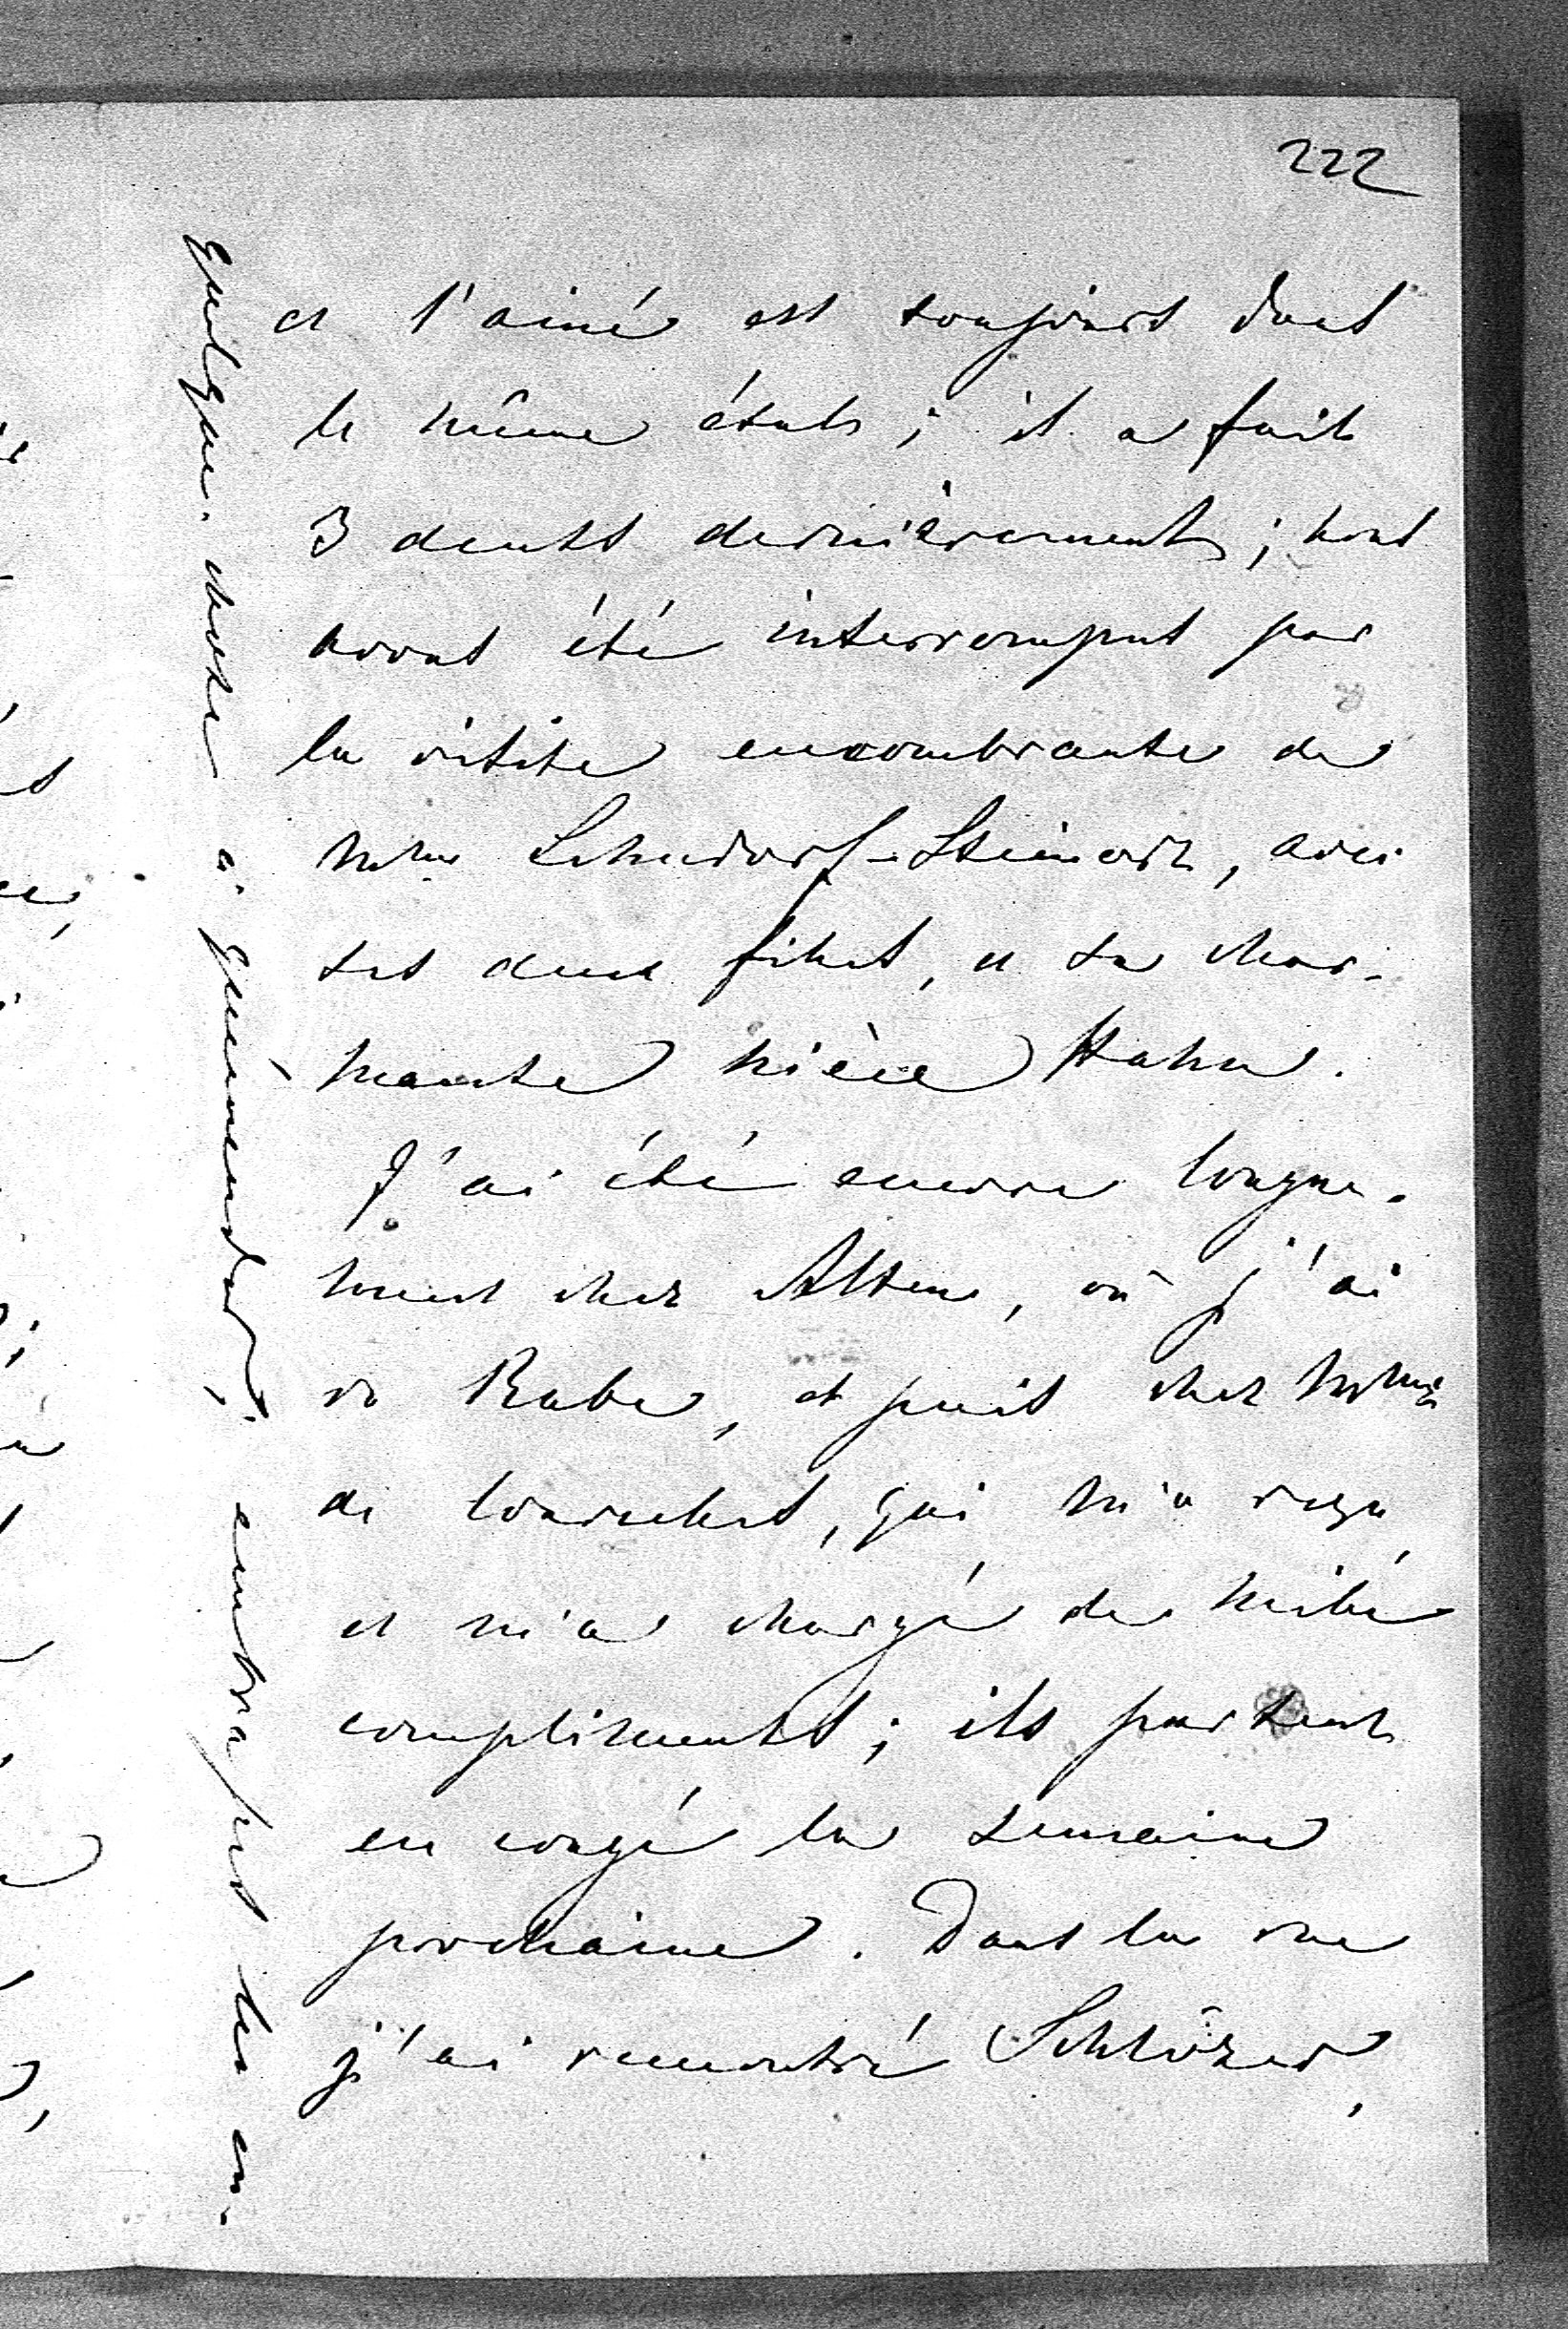 222
et l'ainé est toujours dans
le même état ; il a fait
3 dents dernièrement ; nous
avons été interrompus par
la visite encombrante de
Mme Lehndorf-Steinort, avec
ses deux filles, et sa char-
mante nièce Hahn.
J'ai été encore longue-
ment chez Alten, où j'ai
vu Rabe, et puis chez Mme
de Courcel, qui m'a reçu
et m'a chargé de mille
compliments ; ils partent
en congé la semaine
prochaine. Dans la rue
j'ai rencontré Schlözer,
quelque chose à quémander ; embrasses les en-